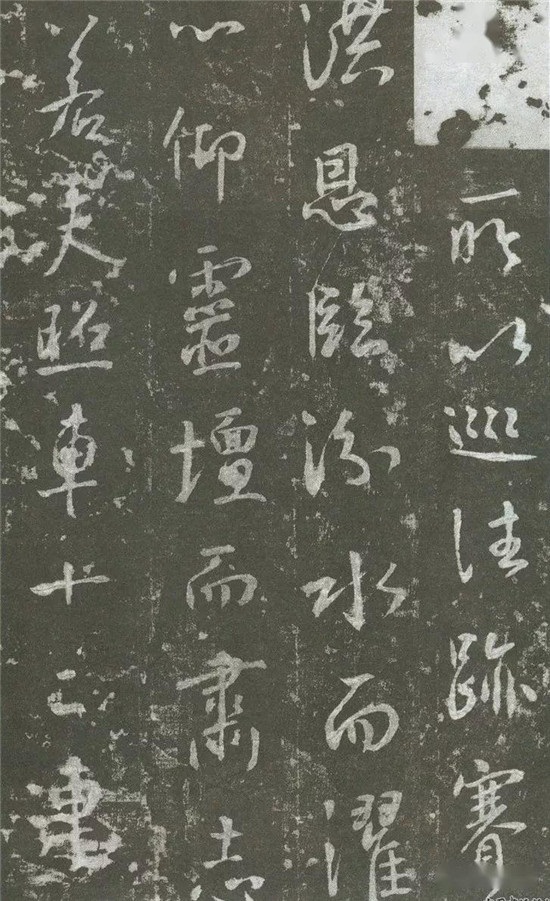 所以巡往跡賽
洪恩臨汾水而濯
心仰靈壇而肅志
若夫照車十二連